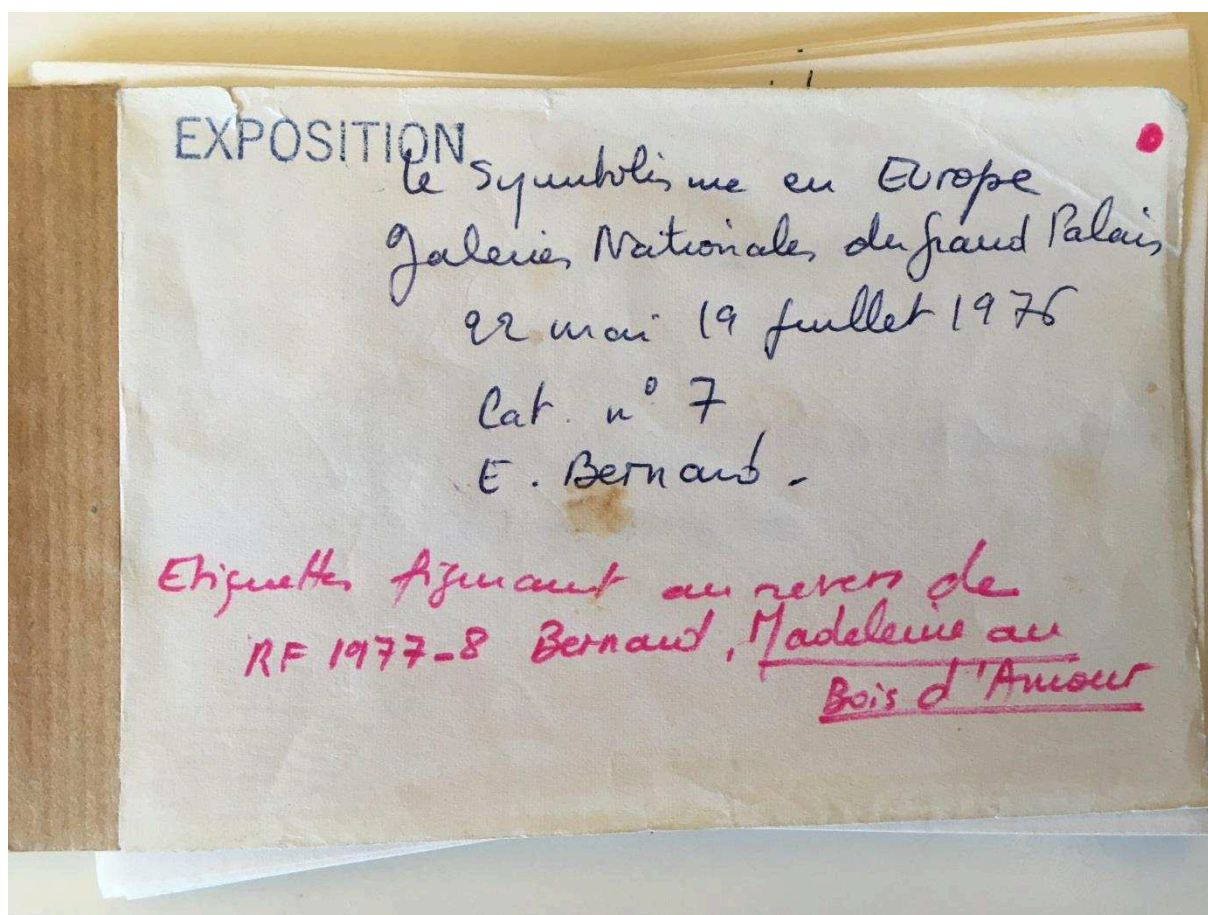 EXPOSITION
Le Symbolisme en Europe
Galeries Nationales du Grand Palais
22 mai 19 juillet 1976
Cat. n° 7
E. Bernard.
Etiquettes figurant au revers de
RF 1977-8 Bernard, Madeleine au
Bois d'Amour